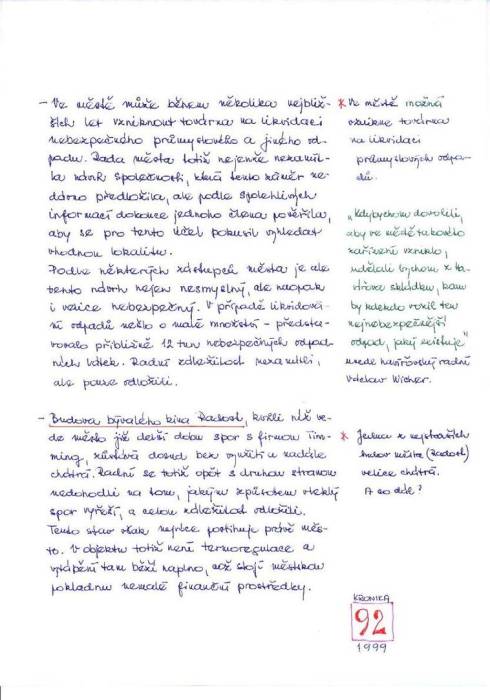 - Ve městě může během několika nejbliž-
ších let vzniknout továrna na likvidaci
nebezpečného průmyslového a jiného od-
padu. Rada města totiž nejenže nezamít-
la návrh společnosti, která tento záměr ne-
dávno předložila, ale podle spolehlivých
informací dokonce jednoho člena pověřila,
aby se pro tento účel pokusil vyhledat
vhodnou lokalitu.
Podle některých zástupců města je ale
tento návrh nejen nesmyslný, ale naopak
i velice nebezpečný. V případě likvidová-
ní odpadů nešlo o malé množství - předsta-
vovalo přibližně 12 tun nebezpečných odpad-
ních látek. Radní záležitost nezamítli,
ale pouze odložili.
* Ve městě možná
vznikne továrna
na likvidaci
průmyslových odpa-
dů.
"Kdybychom dovolili,
aby ve městě takového
zařízení vzniklo,
udělali bychom z ta-
skládku, kam
by kdekdo vozil ten
nejnebezpečnější
odpad, jaký existuje"
uvedl havířovský radní
Václav Wicher.
- Budova bývalého kina Radost, kvůli níž ve-
de město již delší dobu spor s firmou Tim-
ming, zůstává dosud bez využití a nadále
chátrá. Radní se totiž opět s druhou stranou
nedohodli na tom, jakým způsobem vleklý
spor vyřeší, a celou záležitost odložili.
Tento stav však nejvíce postihuje právě měs-
to. V objektu totiž není termoregulace a
vytápění tam běží naplno, což stojí městskou
pokladnu nemalé finanční prostředky.
* Jedna z nejstarších
budov města (Radost)
velice chátrá.
A co dál?
KRONIKA
92
1999